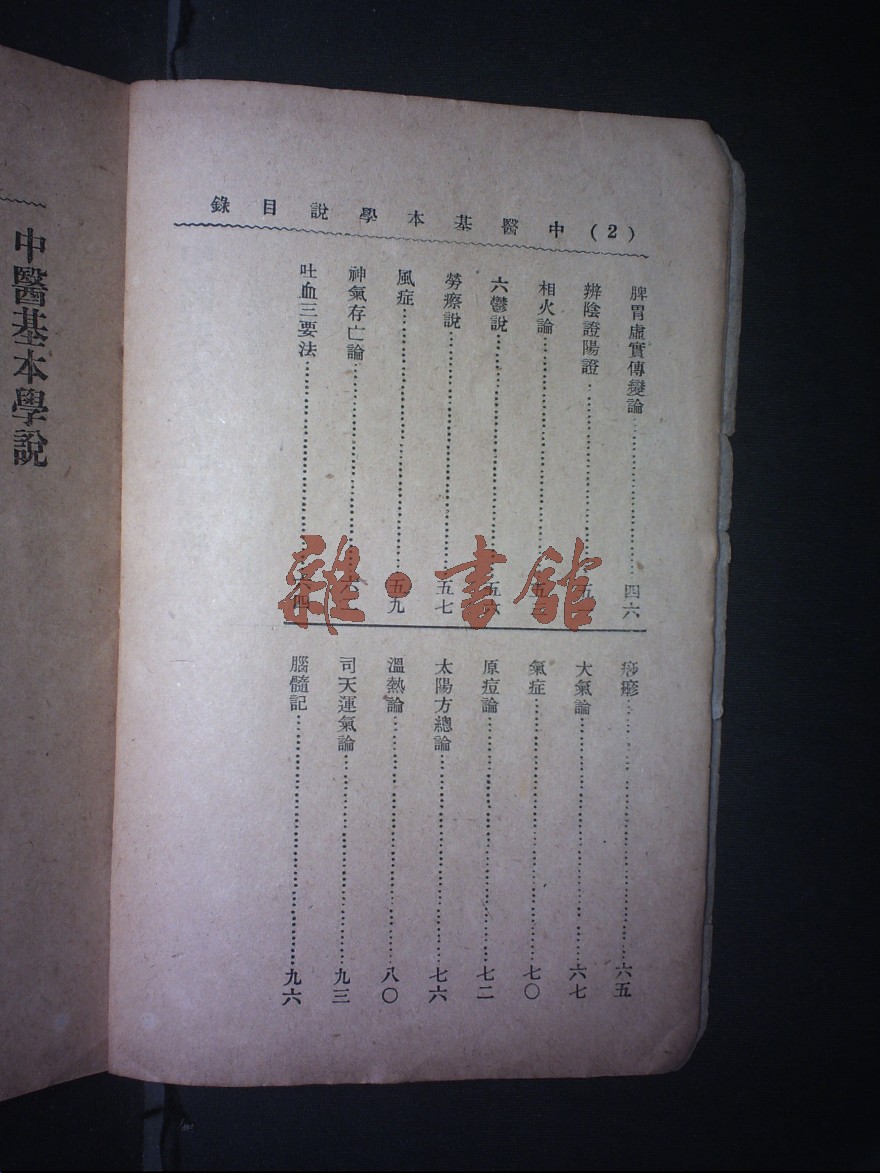 (2) 中醫基本學說目錄
脾胃虛實傳變論 四六
辨陰證陽證 五
相火論 五
六鬱說 五六
勞瘵說 五七
風症 五九
神氣存亡論 六
吐血三要法 六四
痧瘮 六五
大氣論 六七
氣症 七〇
原痘論 七二
太陽方總論 七六
溫熱論 八〇
司天運氣論 九三
腦髓記 九六
中醫基本學說
雜·書館